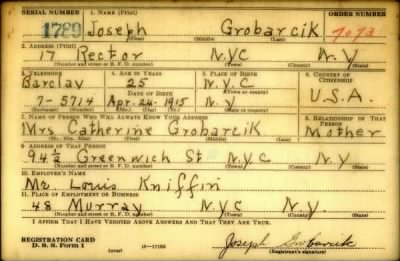 SERIAL NUMBER 1. NAME (Print) ORDER NUMBER
1789 Joseph Grobarcik 7073
(First) (Middle) (Last)
2. ADDRESS (Print)
17 Rector N.Y.C N.Y
(Number and street or R. F. D. number) (Town) (County) (State)
3. TELEPHONE 4. AGE IN YEARS 5. PLACE OF BIRTH 6. COUNTRY OF CITIZENSHIP
Barclay 25 N.Y.C
DATE OF BIRTH (Town or county)
7-5714 Apr. 24. 1915 N.Y U.S.A.
(Exchange) (Number) (Mo.) (Day) (Yr.) (State or country)
7. NAME OF PERSON WHO WILL ALWAYS KNOW YOUR ADDRESS 8. RELATIONSHIP OF THAT PERSON
Mrs Catherine Grobarcik Mother
(Mr., Mrs., Miss) (First) (Middle) (Last)
9. ADDRESS OF THAT PERSON
94½ Greenwich St N.Y.C N.Y
(Number and street or R. F. D. number) (Town) (County) (State)
10. EMPLOYER'S NAME
Mr. Louis Kniffin
11. PLACE OF EMPLOYMENT OR BUSINESS
48 Murray N.Y.C N.Y.
(Number and street or R. F. D. number) (Town) (County) (State)
I AFFIRM THAT I HAVE VERIFIED ABOVE ANSWERS AND THAT THEY ARE TRUE.
REGISTRATION CARD
D. S. S. Form 1 (over) 16—17105 Joseph Grobarcik
(Registrant's signature)